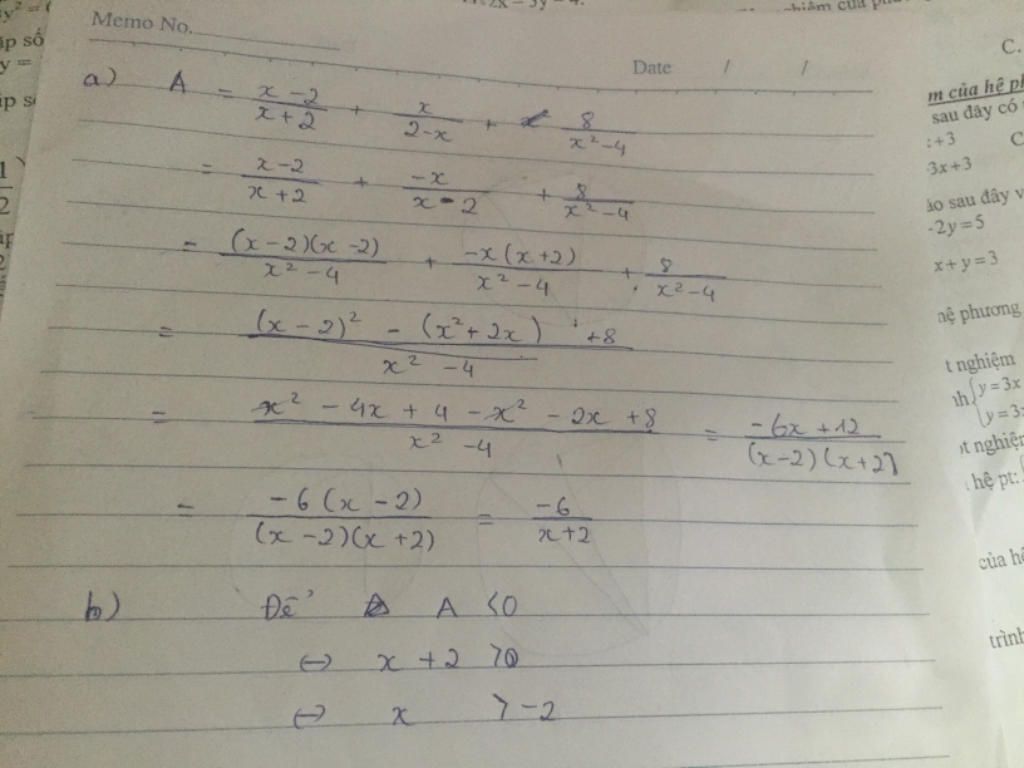 Memo No.
Date / /
a) A = \frac{x-2}{x+2} + \frac{x}{2-x} + \frac{8}{x^2-4}
= \frac{x-2}{x+2} + \frac{-x}{x-2} + \frac{8}{x^2-4}
= \frac{(x-2)(x-2)}{x^2-4} + \frac{-x(x+2)}{x^2-4} + \frac{8}{x^2-4}
= \frac{(x-2)^2 - (x^2+2x) + 8}{x^2-4}
= \frac{x^2 - 4x + 4 - x^2 - 2x + 8}{x^2-4} = \frac{-6x+12}{(x-2)(x+2)}
= \frac{-6(x-2)}{(x-2)(x+2)} = \frac{-6}{x+2}
b) Để A < 0
⇔ x + 2 > 0
⇔ x > -2
C.
m của hệ
sau đây có
+3
C
3x+3
ào sau đây v
-2y=5
x+y=3
hệ phương
t nghiệm
y=3x
y=3
nghiệm
hệ pt:
của hệ
trình